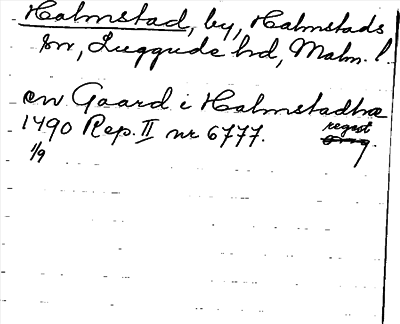 Halmstad, by, Halmstads
sn, Luggude hd, Malm. l.
en Gaard i Halmstadhæ
1490 Rep. II nr 6777. regest
1/9 Orig.